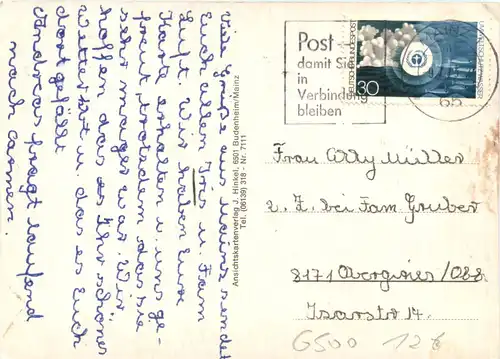 Viele Grüße aus Mainz sendet
Euch allen Iris u. Fam
Luft. Wir haben Eure
Karte erhalten u. uns ge-
freut, trotzdem das sie
sehr mager war. Wir
hoffen das es Ihr schönes
Wetter habt u. das es Euch
dort gefällt
Andreas fragt laufend
nach Carmen.
Ansichtskartenverlag J. Hinkel, 6501 Budenheim/Mainz
Tel. (06139) 318 - Nr. 7111
Post
damit Sie
in
Verbindung
bleiben
DEUTSCHE BUNDESPOST
30
65
Frau Elly Müller
z. Z. bei Fam. Gruber
8171 Obergries/Obb
Isarstr. 14.
G500 12€